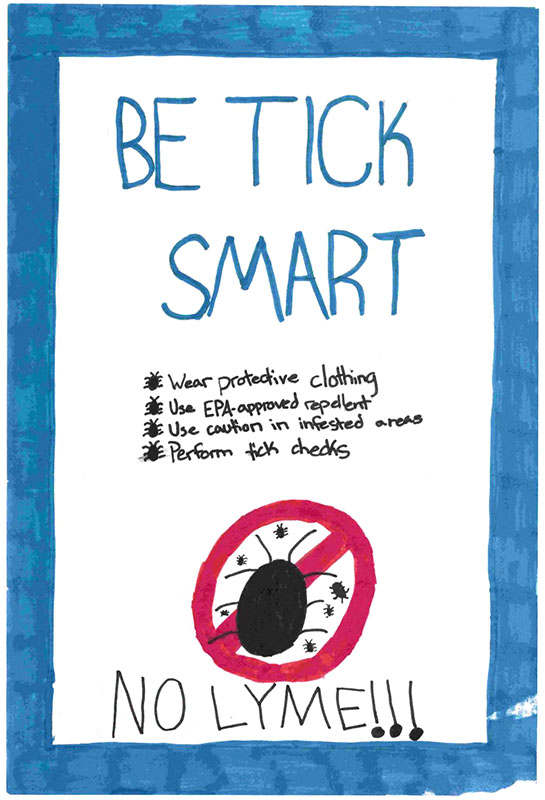 BE TICK
SMART
Wear protective clothing
Use EPA-approved repellent
Use caution in infested areas
Perform tick checks
NO LYME!!!